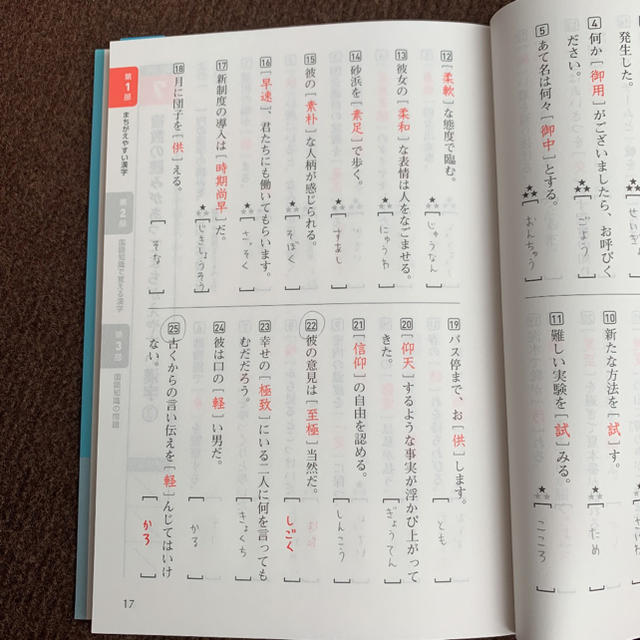 発生した。
4 何か［御用］がございましたら、お呼びく
ださい。 ［ごよう］
5 あて名は何々［御中］とする。 ［おんちゅう］
10 新たな方法を［試］す。 ［ため］
11 難しい実験を［試］みる。 ［こころ］
12 ［柔軟］な態度で臨む。 ［じゅうなん］
13 彼女の［柔和］な表情は人をなごませる。 ［にゅうわ］
14 砂浜を［素足］で歩く。 ［すあし］
15 彼の［素朴］な人柄が感じられる。 ［そぼく］
16 ［早速］、君たちにも働いてもらいます。 ［さっそく］
17 新制度の導入は［時期尚早］だ。 ［じきしょうそう］
18 月に団子を［供］える。 ［そな］
19 バス停まで、お［供］します。 ［とも］
20 ［仰天］するような事実が浮かび上がって
きた。 ［ぎょうてん］
21 ［信仰］の自由を認める。 ［しんこう］
22 彼の意見は［至極］当然だ。 ［しごく］
23 幸せの［極致］にいる二人に何を言っても
むだだろう。 ［きょくち］
24 彼は口の［軽］い男だ。 ［かる］
25 古くからの言い伝えを［軽］んじてはいけ
ない。 ［かろ］
第1部 まちがえやすい漢字
第2部 国語知識で覚える漢字
第3部 国語知識の問題
17